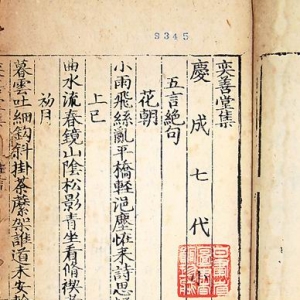 奕善堂集
慶成七代
五言絶句
花朝
小雨飛絲亂平橋輕浥塵来詩思
上巳
曲水流春鏡山陰松影青坐看脩禊
初月
暮雲吐細鈎斜掛荼蘼架誰道未安